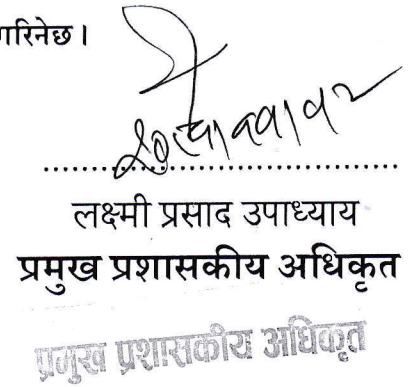 गरिनेछ ।
........................................
लक्ष्मी प्रसाद उपाध्याय
प्रमुख प्रशासकीय अधिकृत
प्रमुख प्रशासकीय अधिकृत